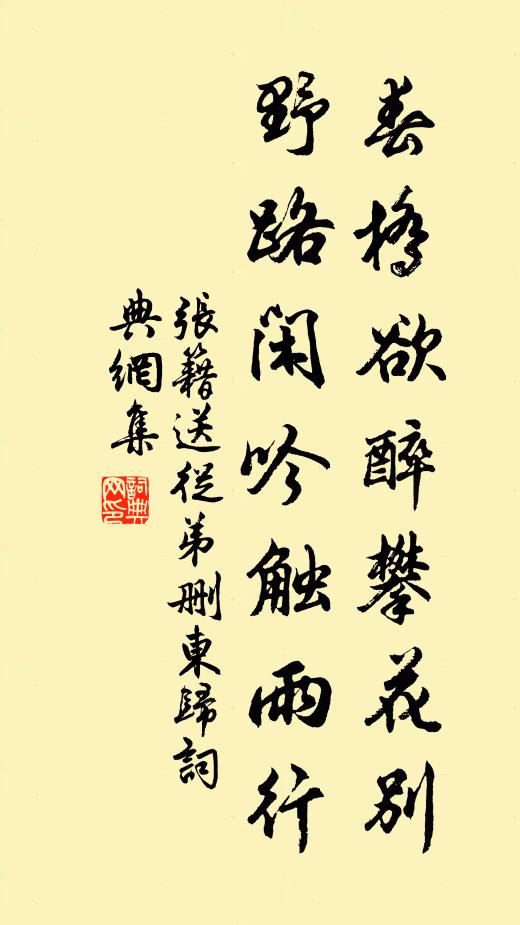 春橋欲醉攀花別
野路閑吟触雨行
張籍送從弟刪東歸詞
典網集
詞典
网印